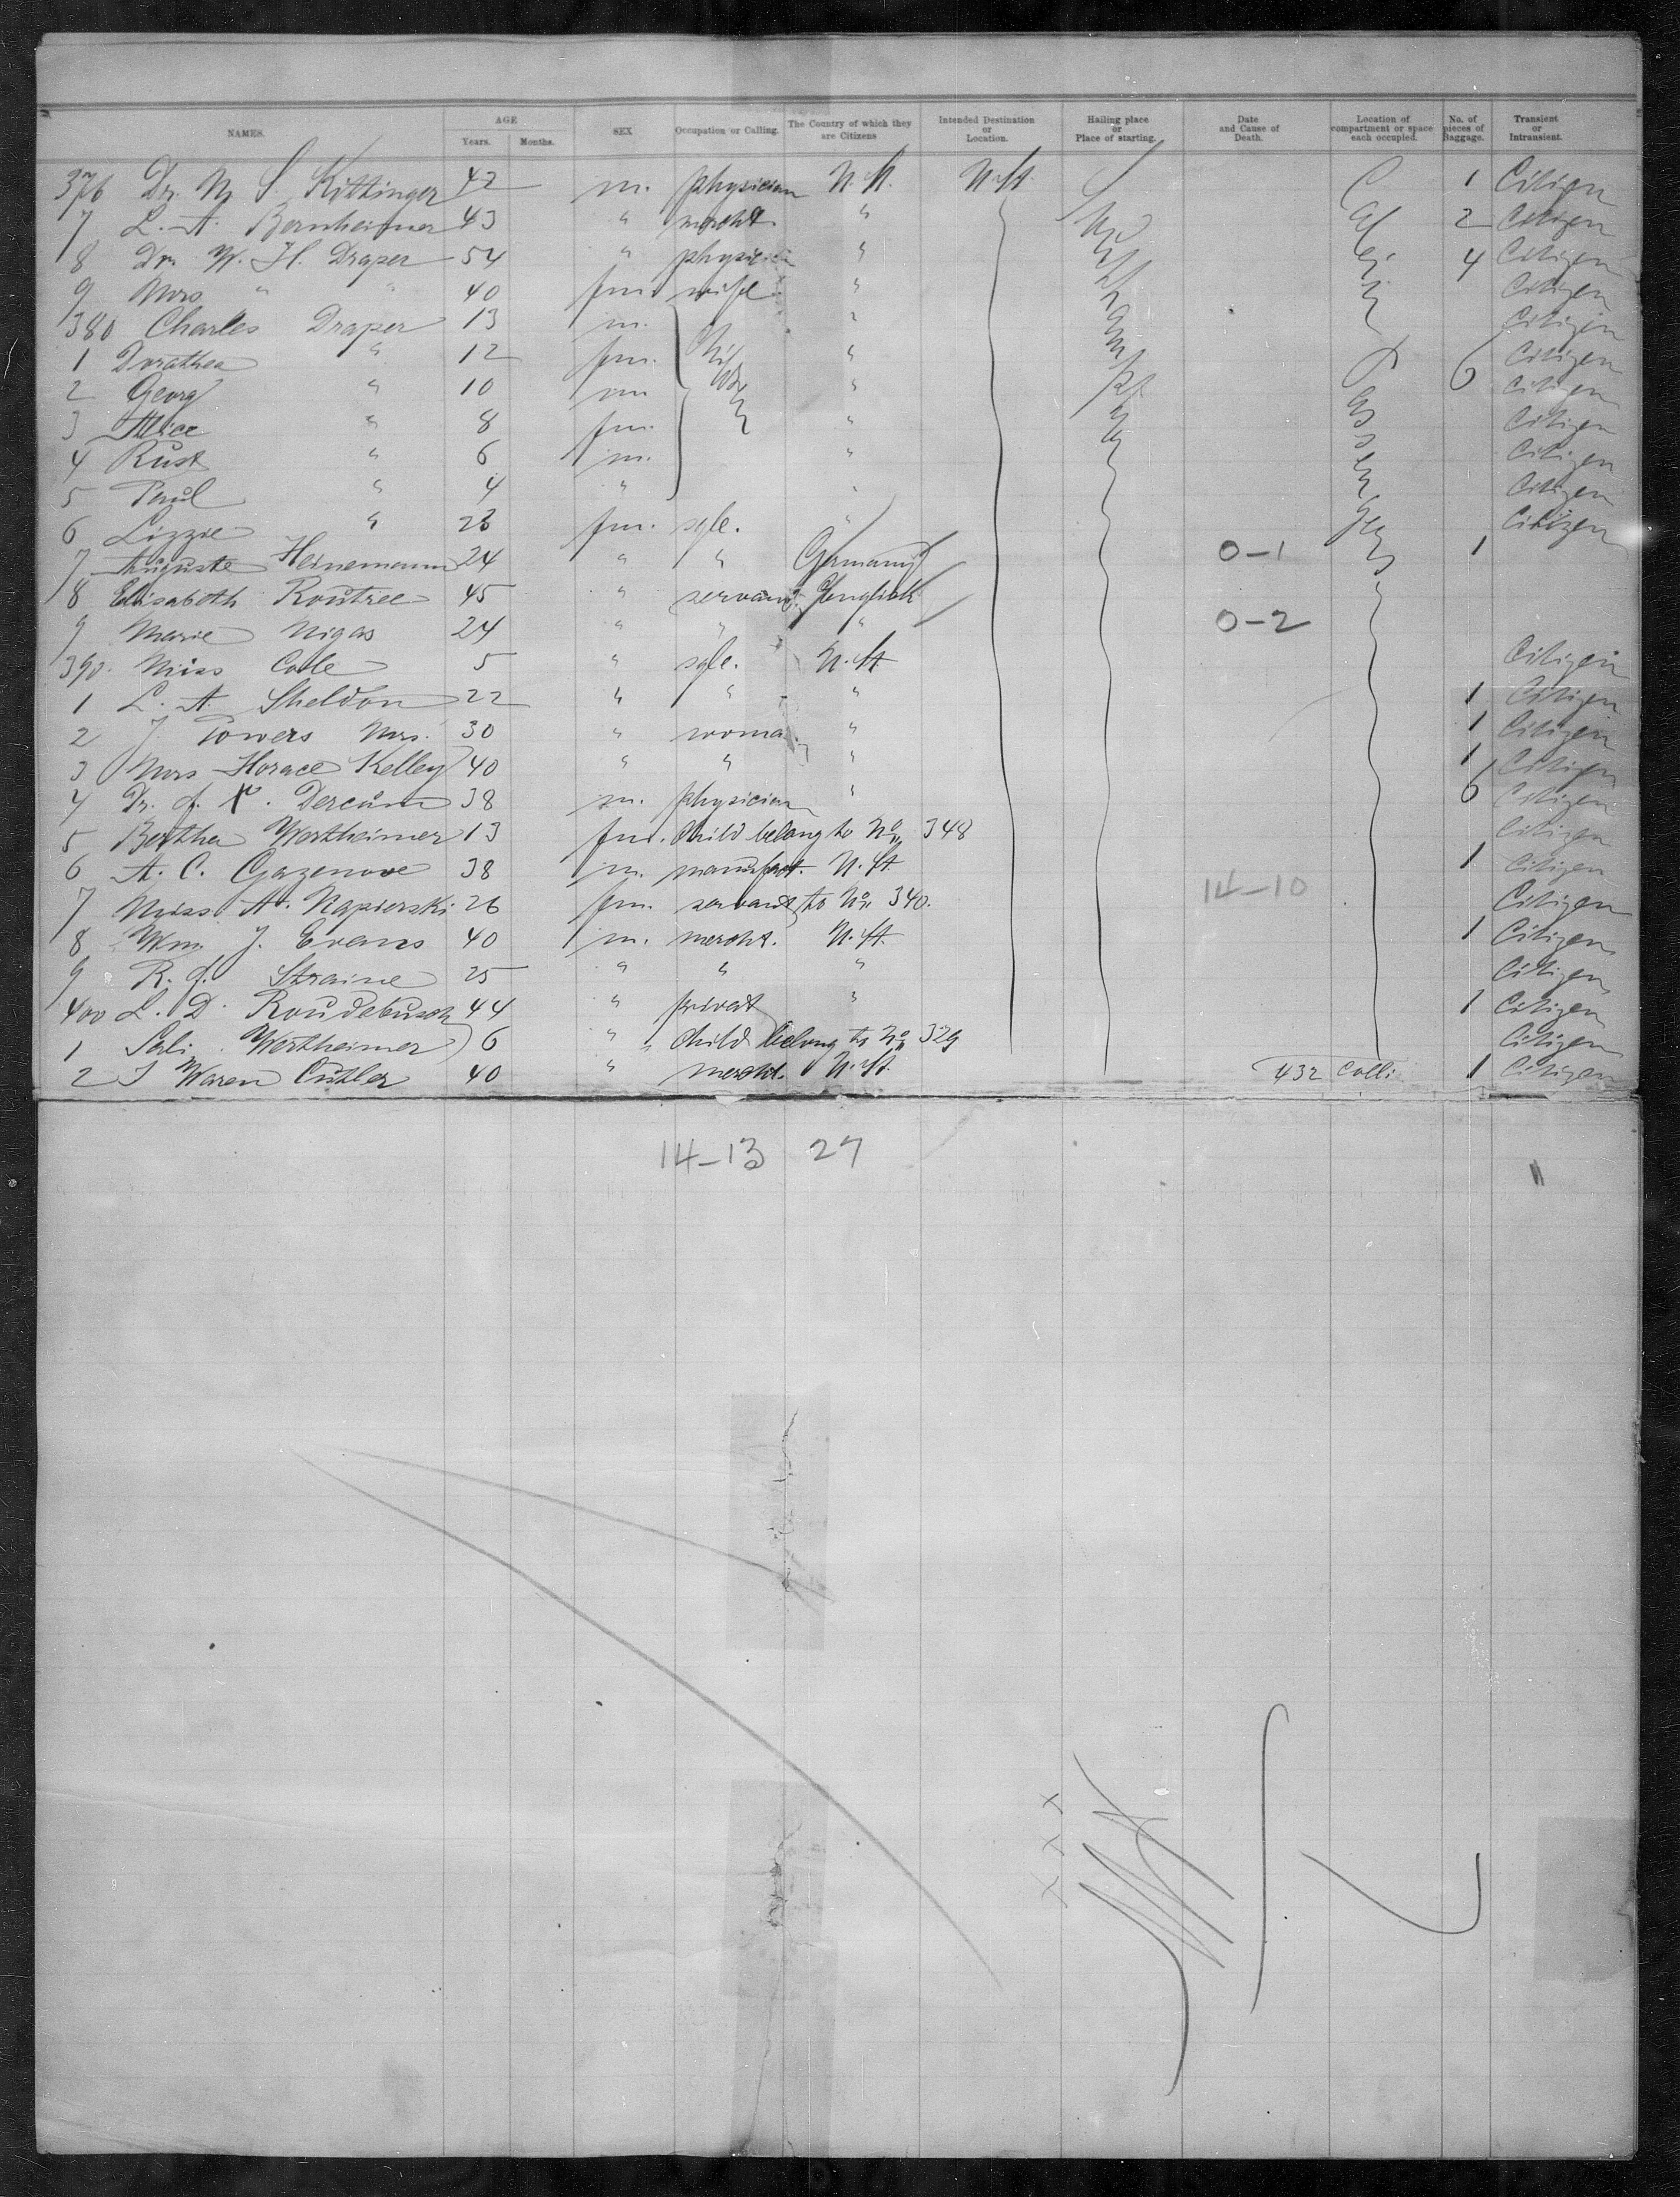 NAMES. AGE Years. Months. SEX Occupation or Calling. The Country of which they are Citizens Intended Destination or Location. Hailing place or Place of starting. Date and Cause of Death. Location of compartment or space each occupied. No. of pieces of Baggage. Transient or Intransient.
376 Dr. M. S. Kittinger 42 m. physician U. St. U. St. 1 Citizen
7 L. A. Bernheimer 43 " mercht. " 2 Citizen
8 Dr. W. H. Draper 54 " physician " 4 Citizen
9 Mrs " " 40 fm. wife " Citizen
380 Charles Draper 13 m. " Citizen
1 Dorathea " 12 fm. " Citizen
2 Georg " 10 m " 6 Citizen
3 Alice " 8 fm. " Citizen
4 " 6 m. " Citizen
5 Paul " 4 " " Citizen
6 Lizzie " fm. sgle. " Citizen
7 Auguste Heinemann 24 " " Germany 0-1 1
8 Elisabeth Rountree 45 " servant English
9 Marie Nigas 24 " " " 0-2
390. Miss Cole 5 " sgle. U. St Citizen
1 L. A. Sheldon 22 " " " 1 Citizen
2 J. Powers Mrs. 30 " woman " 1 Citizen
3 Mrs Horace Kelley 40 " " " 1 Citizen
4 Dr. f. X. Dercum 38 m. physician " 6 Citizen
5 Bertha Wertheimer 13 fm. child belong to No. 348 Citizen
6 A. C. Gazenove 38 m. manufact. U. St. 1 Citizen
7 Miss A. Napierski 26 fm. servant to No. 340. 14-10 Citizen
8 Wm J. Evans 40 m. mercht. U. St. 1 Citizen
9 R. f. Straine 25 " " " Citizen
400 L. D. Roudebusch 44 " privat " 1 Citizen
1 Sali Wertheimer 6 " child belong to No. 329 Citizen
2 J Waren Cutler 40 " mercht. U. St. 432 Colli 1 Citizen
14-13 27
11
X X X